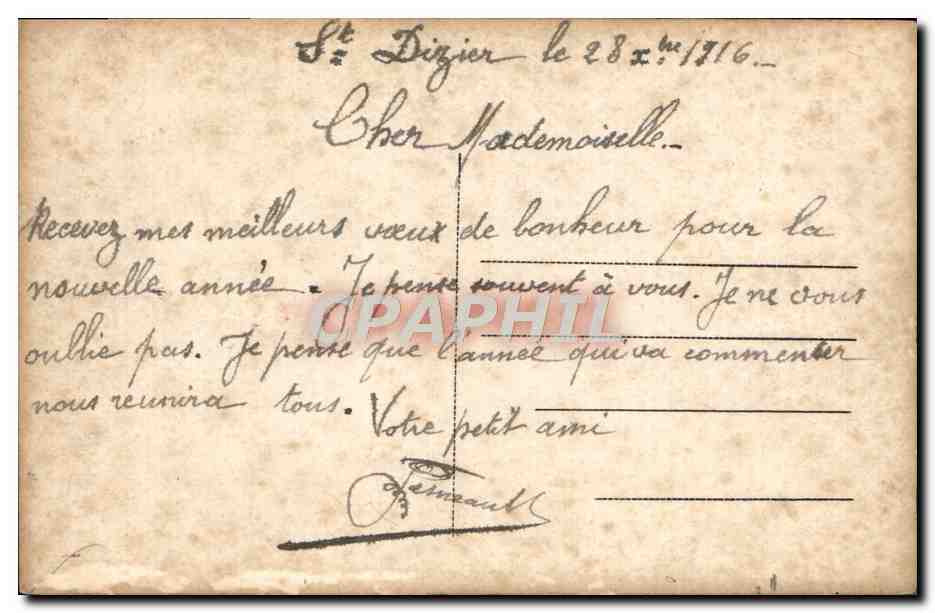 St Dizier le 28 xbre 1916._
Cher Mademoiselle._
Recevez mes meilleurs vœux de bonheur pour la
nouvelle année. Je pense souvent à vous. Je ne vous
CPAPHIL
oublie pas. Je pense que l'année qui va commenser
nous reunira tous.
Votre petit ami